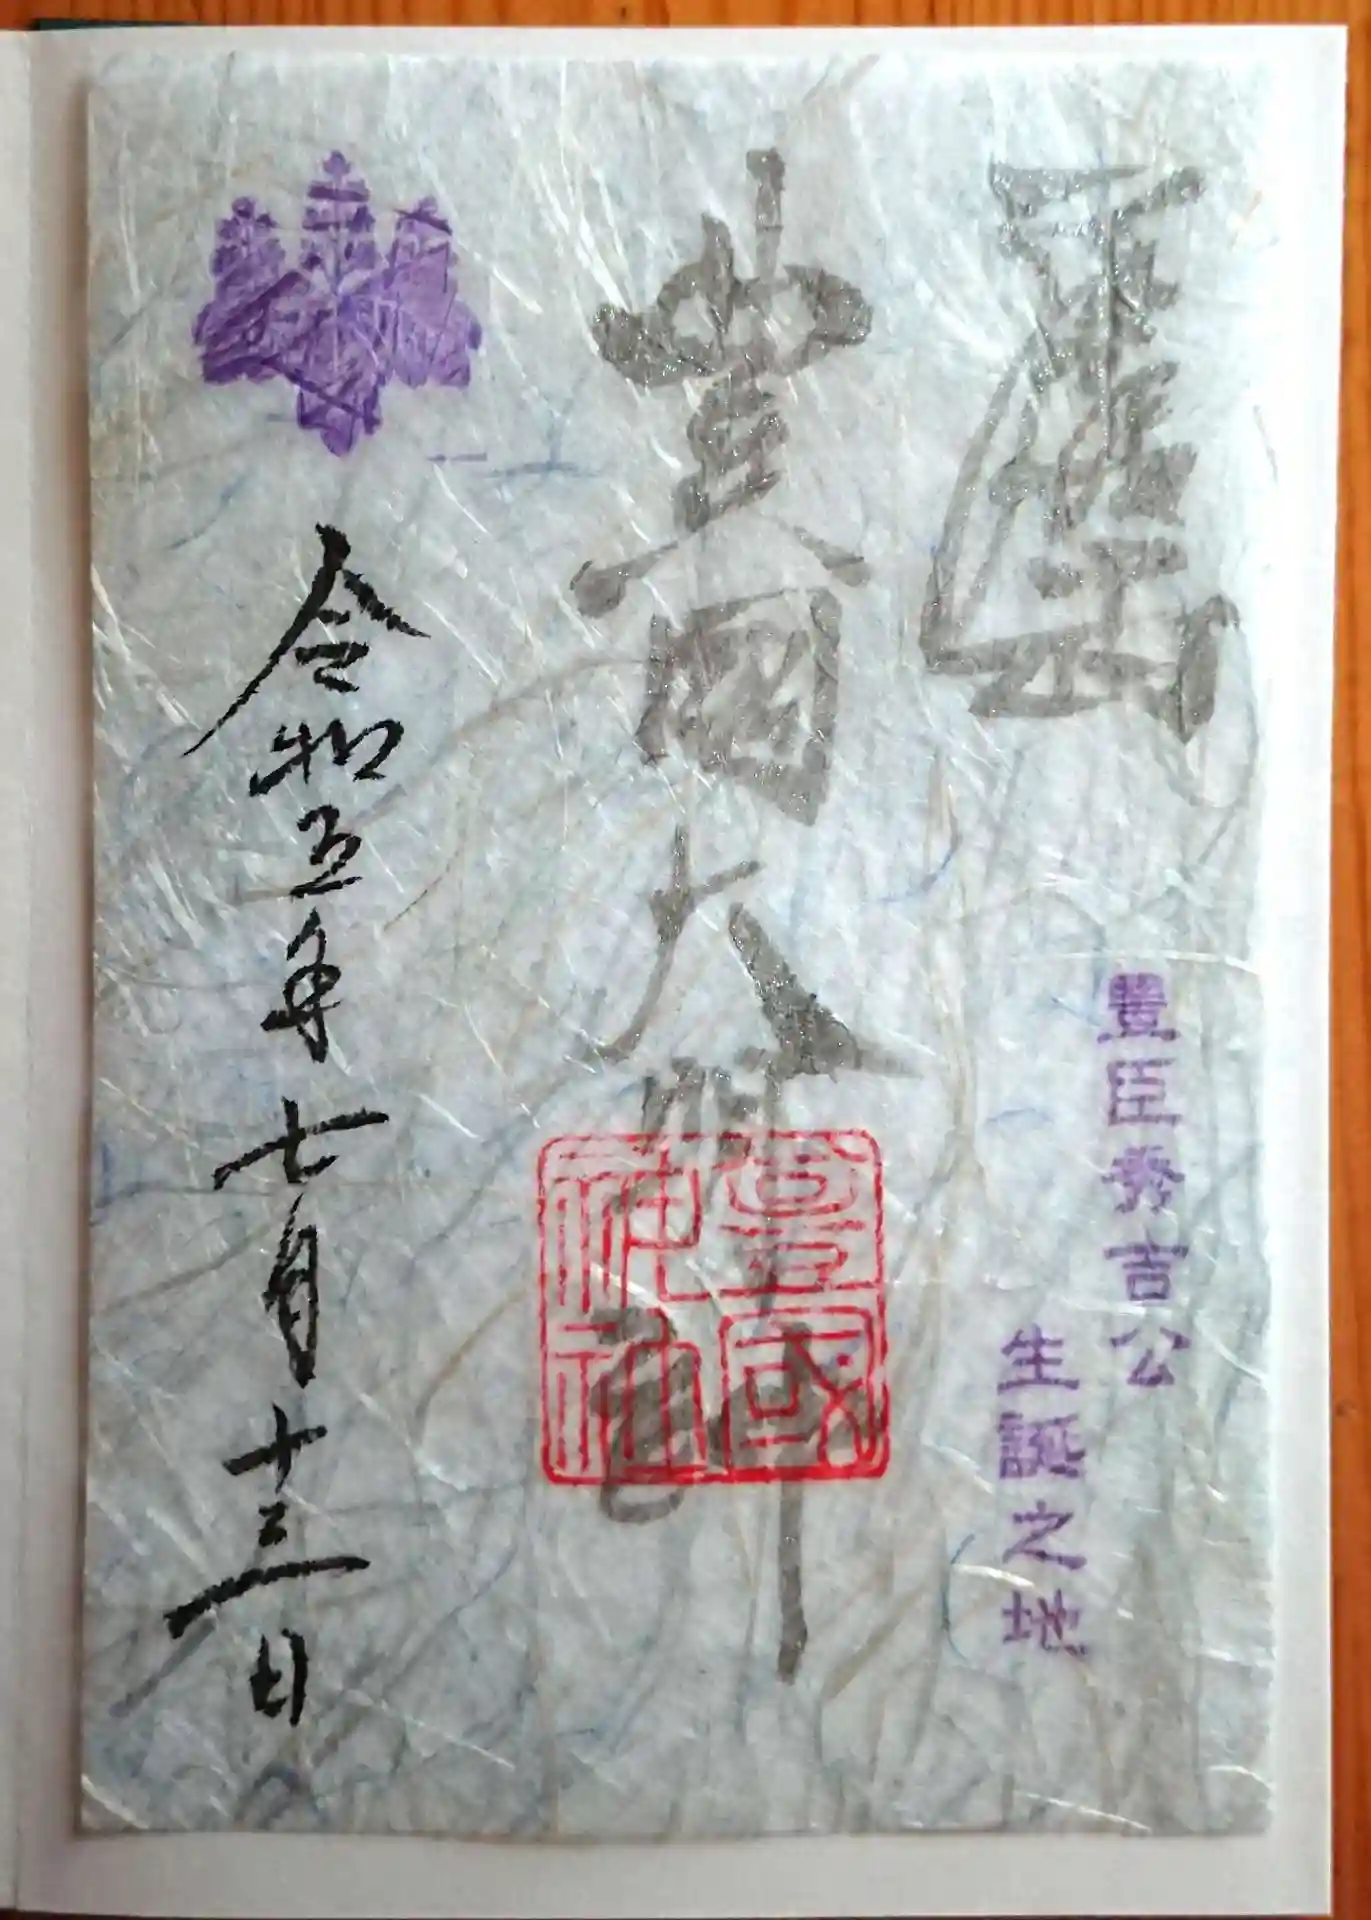 豊臣秀吉公
生誕之地
豊國大明神
豊國
神社
令和五年七月十三日